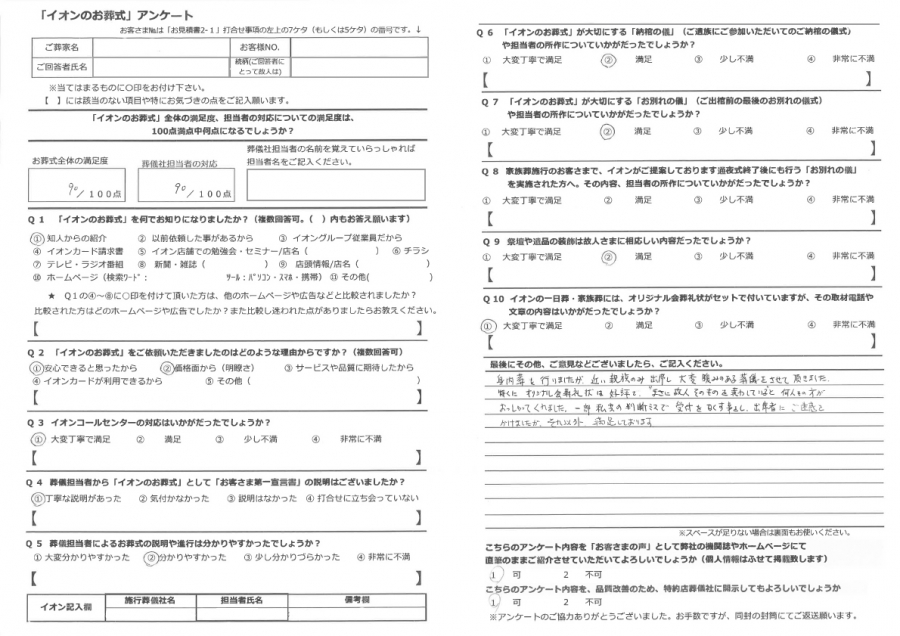 「イオンのお葬式」アンケート
お客さま№は「お見積書2-1」打合せ事項の左上の7ケタ（もしくは5ケタ）の番号です。↓
ご葬家名 お客様NO.
ご回答者氏名 続柄(ご回答者にとって故人は)
※当てはまるものに○印をお付け下さい。
【 】には該当のない項目や特にお気づきの点をご記入願います。
「イオンのお葬式」全体の満足度、担当者の対応についての満足度は、
100点満点中何点になるでしょうか？
お葬式全体の満足度
90/100点
葬儀社担当者の対応
90/100点
葬儀社担当者の名前を覚えていらっしゃれば
担当者名をご記入ください。
Q 1 「イオンのお葬式」を何でお知りになりましたか？（複数回答可。（ ）内もお答え願います）
① 知人からの紹介 ② 以前依頼した事があるから ③ イオングループ従業員だから
④ イオンカード請求書 ⑤ イオン店舗での勉強会・セミナー/店名（ ） ⑥ チラシ
⑦ テレビ・ラジオ番組 ⑧ 新聞・雑誌（ ） ⑨ 店頭情報/店名（ ）
⑩ ホームページ（検索ﾜｰﾄﾞ： ﾂｰﾙ：ﾊﾟｿｺﾝ・ｽﾏﾎ・携帯） ⑪ その他( )
★ Q1の④～⑩に○印を付けて頂いた方は、他のホームページや広告などと比較されましたか？
比較された方はどのホームページや広告でしたか？また比較し迷われた点がありましたらお教えください。
【 】
Q 2 「イオンのお葬式」をご依頼いただきましたのはどのような理由からですか？（複数回答可）
①安心できると思ったから ②価格面から（明瞭さ） ③ サービスや品質に期待したから
④ イオンカードが利用できるから ⑤ その他（ ）
【 】
Q 3 イオンコールセンターの対応はいかがだったでしょうか？
① 大変丁寧で満足 ② 満足 ③ 少し不満 ④ 非常に不満
【 】
Q 4 葬儀担当者から「イオンのお葬式」として「お客さま第一宣言書」の説明はございましたか？
①丁寧な説明があった ② 気付かなかった ③ 説明はなかった ④ 打合せに立ち会っていない
【 】
Q 5 葬儀担当者によるお葬式の説明や進行は分かりやすかったでしょうか？
① 大変分かりやすかった ②分かりやすかった ③ 少し分かりづらかった ④ 非常に不満
【 】
イオン記入欄 施行葬儀社名 担当者氏名 備考欄
Q 6 「イオンのお葬式」が大切にする「納棺の儀」（ご遺族にご参加いただいてのご納棺の儀式）
や担当者の所作についていかがだったでしょうか？
① 大変丁寧で満足 ② 満足 ③ 少し不満 ④ 非常に不満
【 】
Q 7 「イオンのお葬式」が大切にする「お別れの儀」（ご出棺前の最後のお別れの儀式）
や担当者の所作についていかがだったでしょうか？
① 大変丁寧で満足 ② 満足 ③ 少し不満 ④ 非常に不満
【 】
Q 8 家族葬施行のお客さまで、イオンがご提案しております通夜式終了後にも行う「お別れの儀」
を実施された方へ。その内容、担当者の所作についていかがだったでしょうか？
① 大変丁寧で満足 ② 満足 ③ 少し不満 ④ 非常に不満
【 】
Q 9 祭壇や遺品の装飾は故人さまに相応しい内容だったでしょうか？
① 大変丁寧で満足 ② 満足 ③ 少し不満 ④ 非常に不満
【 】
Q 10 イオンの一日葬・家族葬には、オリジナル会葬礼状がセットで付いていますが、その取材電話や
文章の内容はいかがだったでしょうか？
① 大変丁寧で満足 ② 満足 ③ 少し不満 ④ 非常に不満
【 】
最後にその他、ご意見などございましたら、ご記入ください。
身内葬を行いましたが、近い親族のみ出席し大変 のある葬儀をさせて頂きました。
特にオリジナル会葬礼状は好評で、"まさに故人そのものを表わしている"と何人もの方が
おっしゃてくれました。一部私共の判断ミスで受付をなくす事とし、出席者にご迷惑を
かけましたが、それ以外満足しております
※スペースが足りない場合は裏面もお使いください。
こちらのアンケート内容を「お客さまの声」として弊社の機関誌やホームページにて
直筆のままご紹介させていただいてよろしいでしょうか（個人情報はふせて掲載致します）
1 可 2 不可
こちらのアンケート内容を、品質改善のため、特約店葬儀社に開示してもよろしいでしょうか
1 可 2 不可
※アンケートのご協力ありがとうございました。お手数ですが、同封の封筒にてご返送願います。